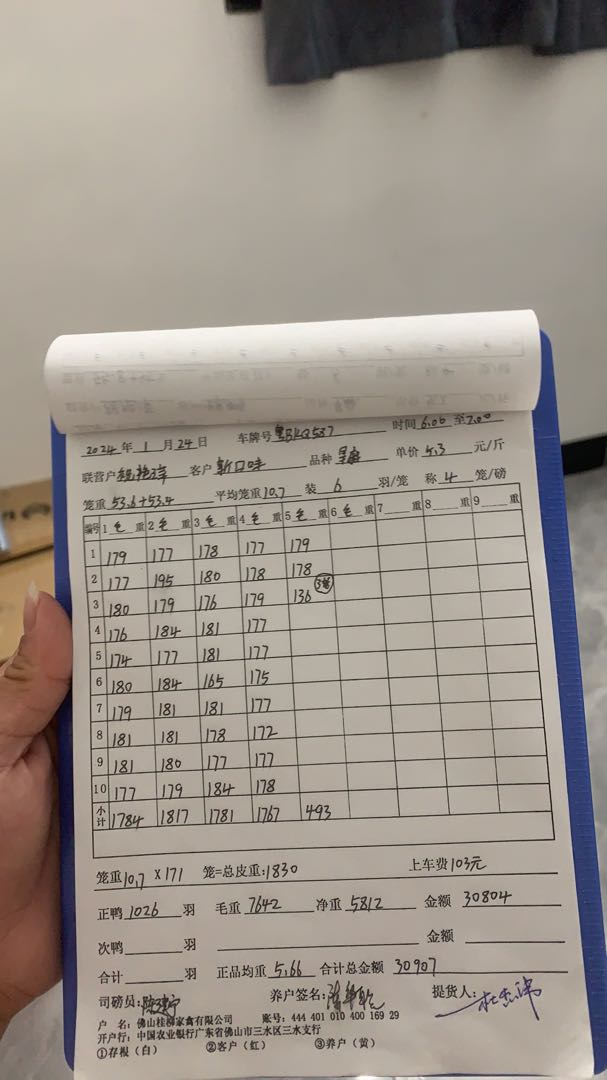 2024 年 1 月 24 日 车牌号 粤BKQ587 时间 6.00 至 7.00
联营户 客户 新口味 品种 单价 5.3 元/斤
笼重 53.6+53.4 平均笼重 10.7 装 6 羽/笼 称 4 笼/磅
编号 1 毛 重 2 毛 重 3 毛 重 4 毛 重 5 毛 重 6 毛 重 7 重 8 重 9 重
1 179 177 178 177 179
2 177 195 180 178 178
3 180 179 176 179 136 3笼
4 176 184 181 177
5 174 177 181 177
6 180 184 165 175
7 179 181 181 177
8 181 181 178 172
9 181 180 177 177
10 177 179 184 178
小计 1784 1817 1781 1767 493
笼重 10.7 X 171 笼=总皮重: 1830 上车费 103元
正鸭 1026 羽 毛重 7642 净重 5812 金额 30804
次鸭 羽 金额
合计 羽 正品均重 5.66 合计总金额 30907
司磅员: 养户签名: 提货人:
户 名: 佛山桂柳家禽有限公司 账号: 444 401 010 400 169 29
开户行: 中国农业银行广东省佛山市三水区三水支行
①存根（白） ②客户（红） ③养户（黄）